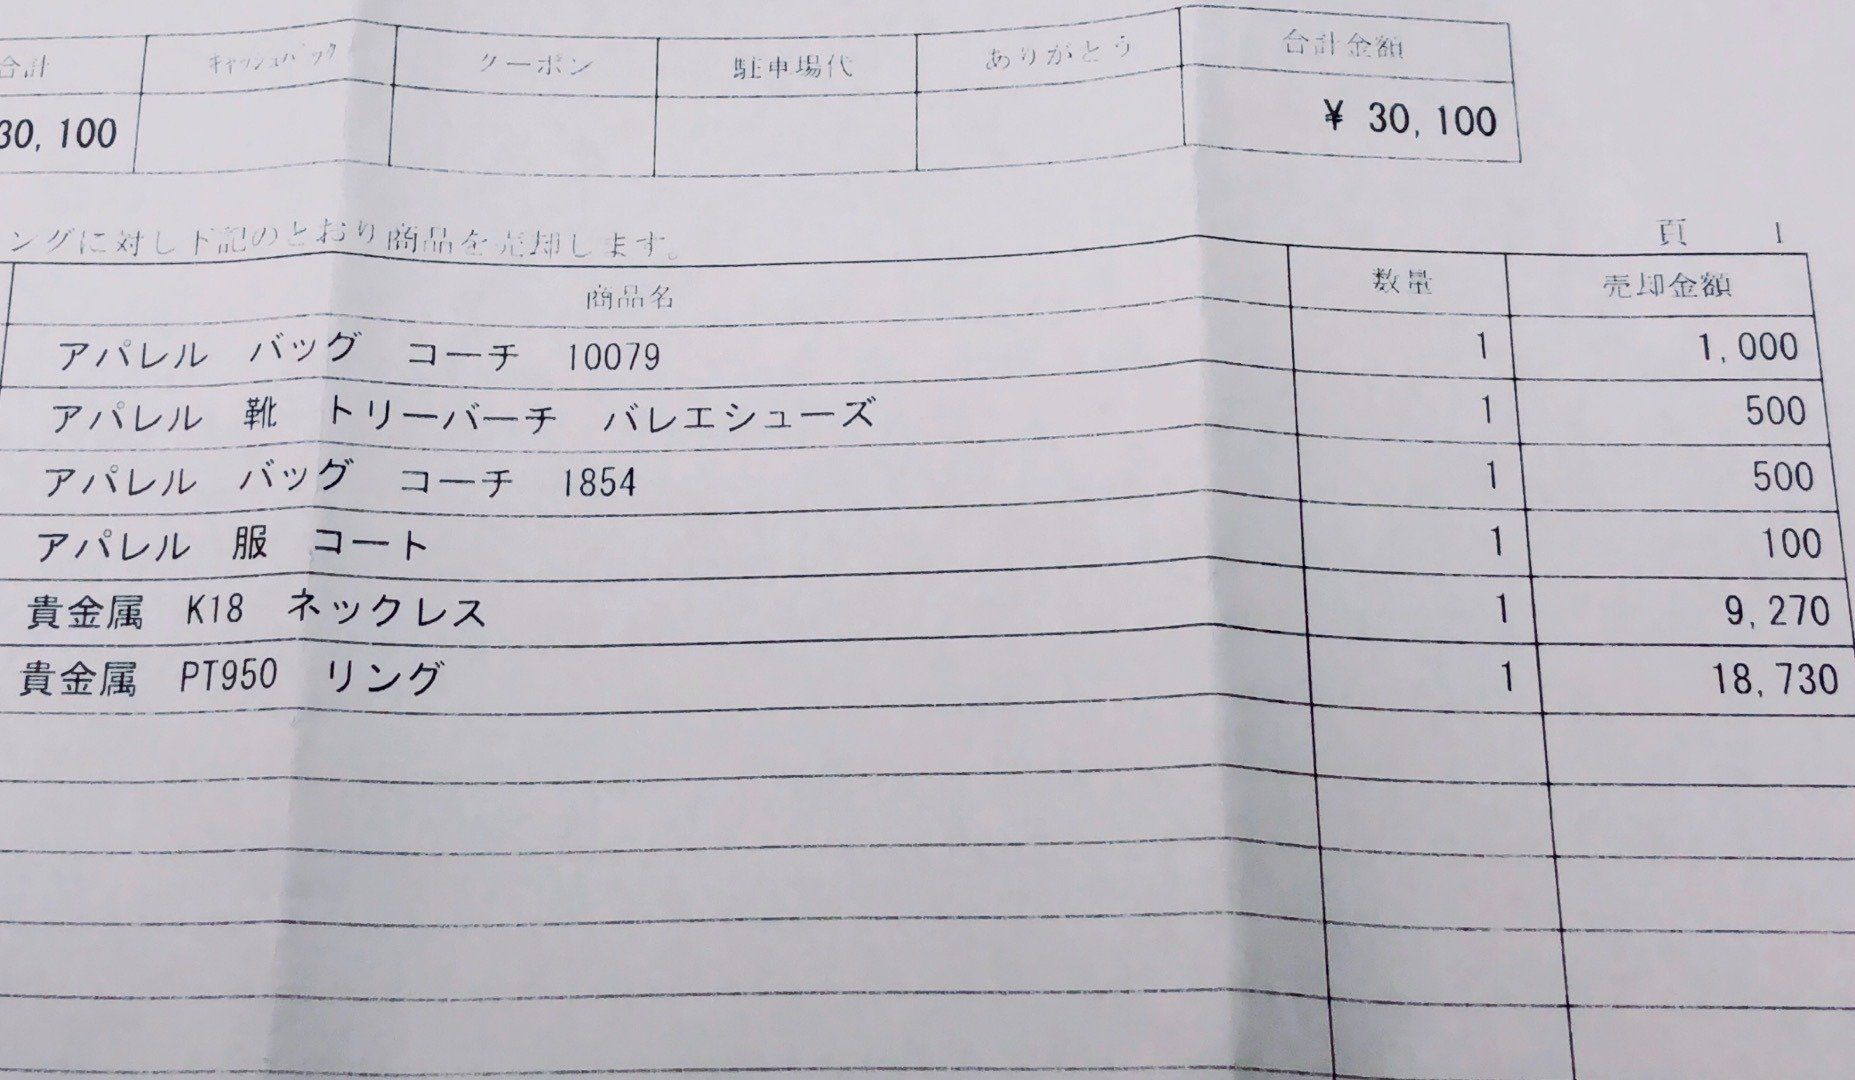 合計 キャッシュバック クーポン 駐車場代 ありがとう 合計金額
30,100 ¥ 30,100
ングに対し下記のとおり商品を売却します。 頁 1
商品名 数量 売却金額
アパレル バッグ コーチ 10079 1 1,000
アパレル 靴 トリーバーチ バレエシューズ 1 500
アパレル バッグ コーチ 1854 1 500
アパレル 服 コート 1 100
貴金属 K18 ネックレス 1 9,270
貴金属 PT950 リング 1 18,730